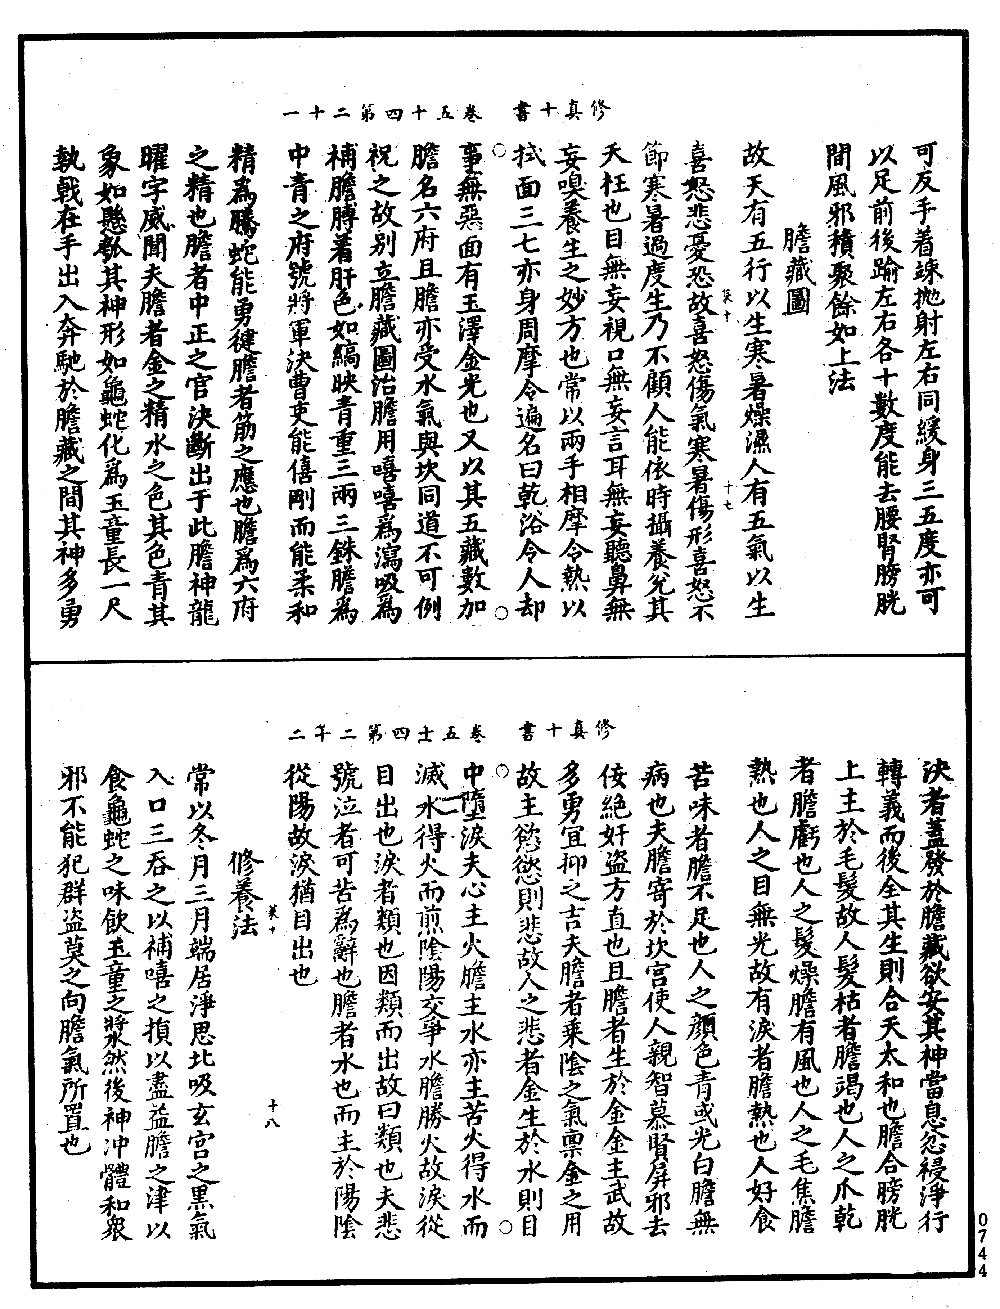 修真十書　卷五十四第二十一
可反手著竦拋射左右同緩身三五度亦可
以足前後踰左右各十數度能去腰腎膀胱
間風邪積聚餘如上法
膽藏圖
故天有五行以生寒暑燥濕人有五氣以生
喜怒悲憂恐故喜怒傷氣寒暑傷形喜怒不
節寒暑過度生乃不顧人能依時攝養免其
天枉也目無妄視口無妄言耳無妄聽鼻無
妄嗅養生之妙方也常以兩手相摩令熱以
拭面三七亦身周摩令遍名曰乾浴令人却
事無惡面有玉澤金光也又以其五藏數加
膽名六府且膽亦受水氣與坎同道不可例
祝之故別立膽藏圖治膽用嘻嘻為瀉吸為
補膽膊著肝色如縞映青重三兩三銖膽為
中青之府號將軍決曹吏能僖剛而能柔和
精為騰蛇能勇健膽者筋之應也膽為六府
之精也膽者中正之官決斷出于此膽神龍
曜字威聞夫膽者金之精水之色其色青其
象如懸瓠其神形如龜蛇化為玉童長一尺
執戟在手出入奔馳於膽藏之間其神多勇
十七
修真十書　卷五十四第二十二
決者蓋發於膽藏欲安其神當息忿祲淨行
轉義而後全其生則合天太和也膽合膀胱
上主於毛髮故人髮枯者膽竭也人之爪乾
者膽虧也人之髮燥膽有風也人之毛焦膽
熱也人之目無光故有淚者膽熱也人好食
苦味者膽不足也人之顏色青或光白膽無
病也夫膽寄於坎宮使人親智慕賢屏邪去
佞絕奸盜方直也且膽者生於金金主武故
多勇宜抑之吉夫膽者乘陰之氣稟金之用
故主慾慾則悲故人之悲者金生於水則目
中墮淚夫心主火膽主水亦主苦火得水而
滅水得火而煎陰陽交爭水膽勝火故淚從
目出也淚者類也因類而出故曰類也夫悲
號泣者可苦為辭也膽者水也而主於陽陰
從陽故淚猶目出也
修養法
常以冬月三月端居淨思北吸玄宮之黑氣
入口三吞之以補嘻之損以盡益膽之津以
食龜蛇之味飲玉童之漿然後神冲體和衆
邪不能犯群盜莫之向膽氣所置也
十八
0744